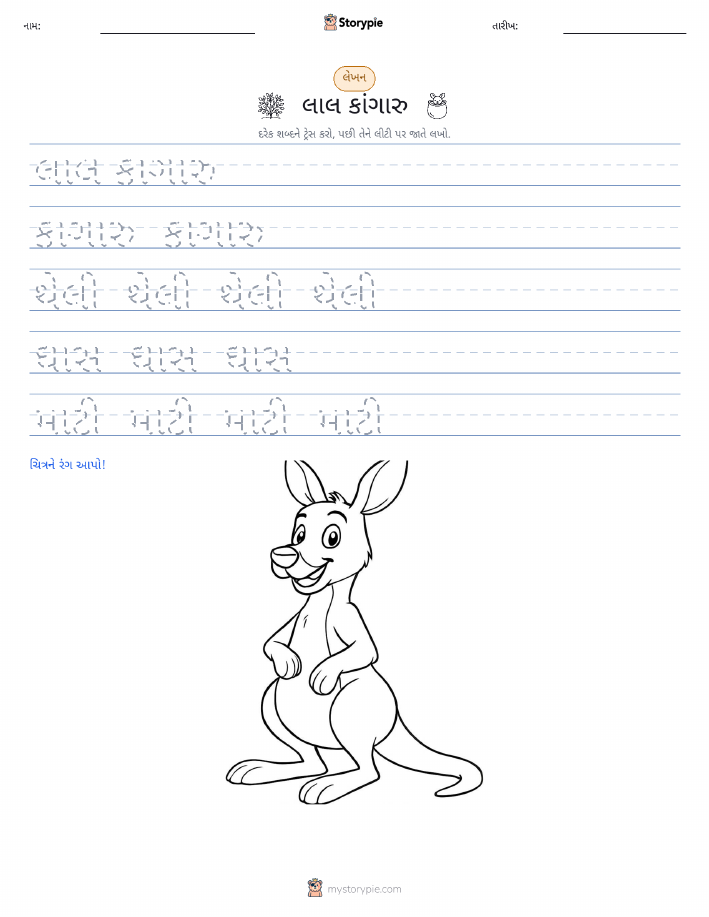 નામ: Storypie તારીખ:
લેખન
લાલ કાંગારુ
દરેક શબ્દને ટ્રેસ કરો, પછી તેને લીટી પર જાતે લખો.
લાલ કાંગારુ
કાંગારુ કાંગારુ
થેલી થેલી થેલી થેલી
ઘાસ ઘાસ ઘાસ
માટી માટી માટી માટી
ચિત્રને રંગ આપો!
mystorypie.com